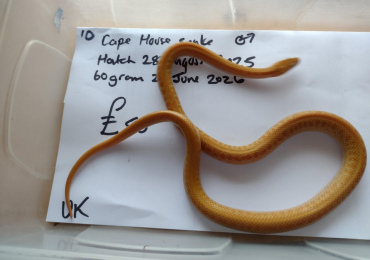 'D Cape House snake ♂
Hatch 28 August 2025
60gram 2 June 2026
£
UK